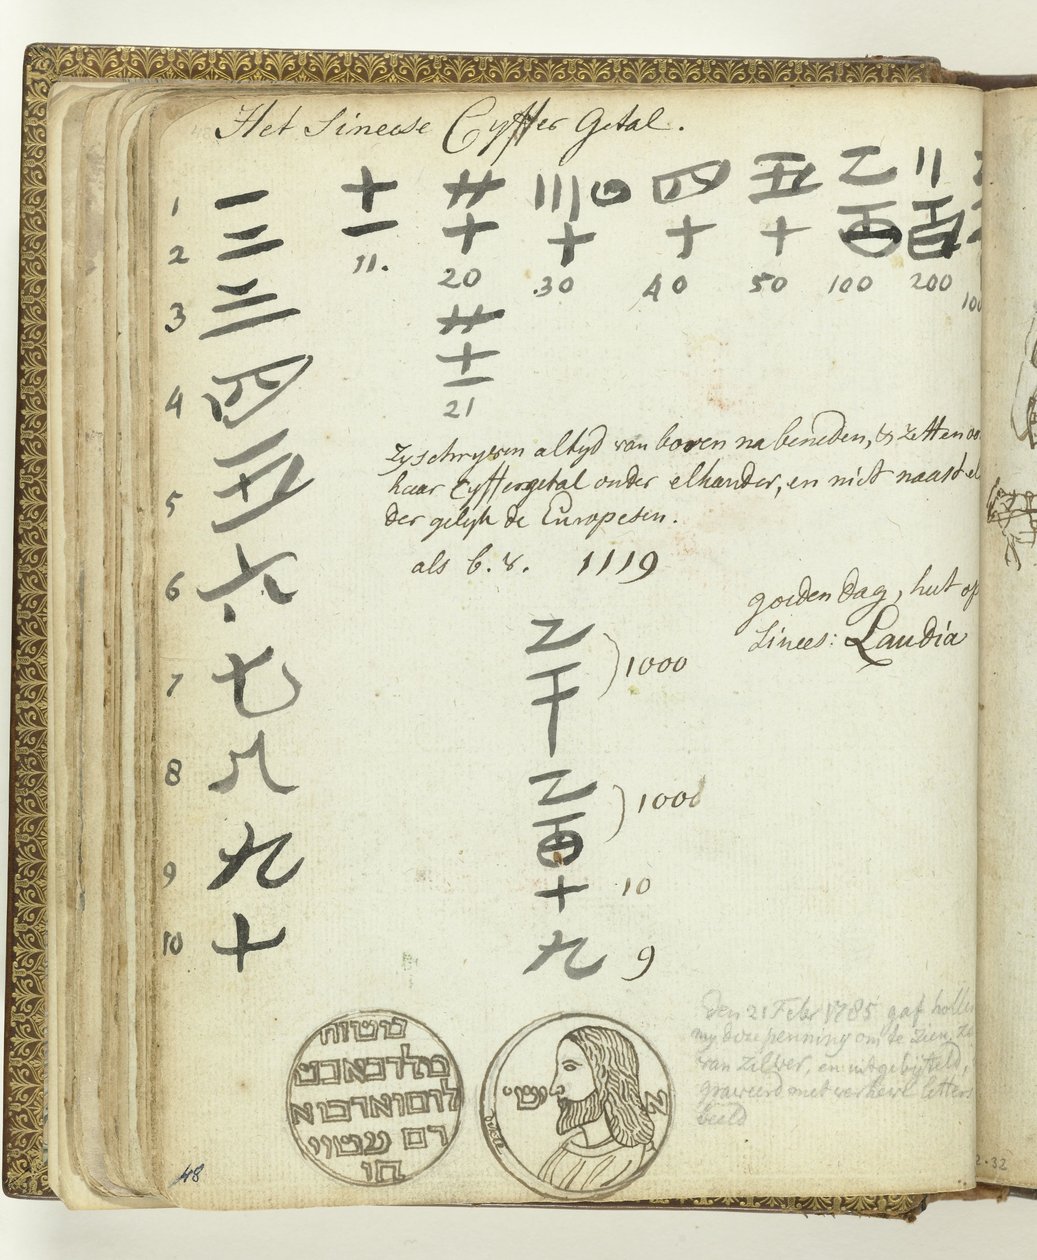 Het Sineese Cyffer Getal.
1 一
2 二
3 三
4 四
5 五
6 六
7 七
8 八
9 九
10 十
十一
11.
廿十
20
廿十一
21
四
十
30
四十
40
五十
50
乙百
100
百
200
100
Zy schryven altyd van boven na beneden, & zetten
haar Cyffergetal onder elkander, en niet naast
der gelyk de Europesen.
als b. v. 1119
乙千 1000
乙百 1000
十 10
九 9
goeden dag, hiet op
Sinees: Laudia
Den 21 Febr 1785 gaf
my deze penning om te zien,
van zilver, en uitgebytteld,
graveerd met verheve letters
beeld
ישו
א
48